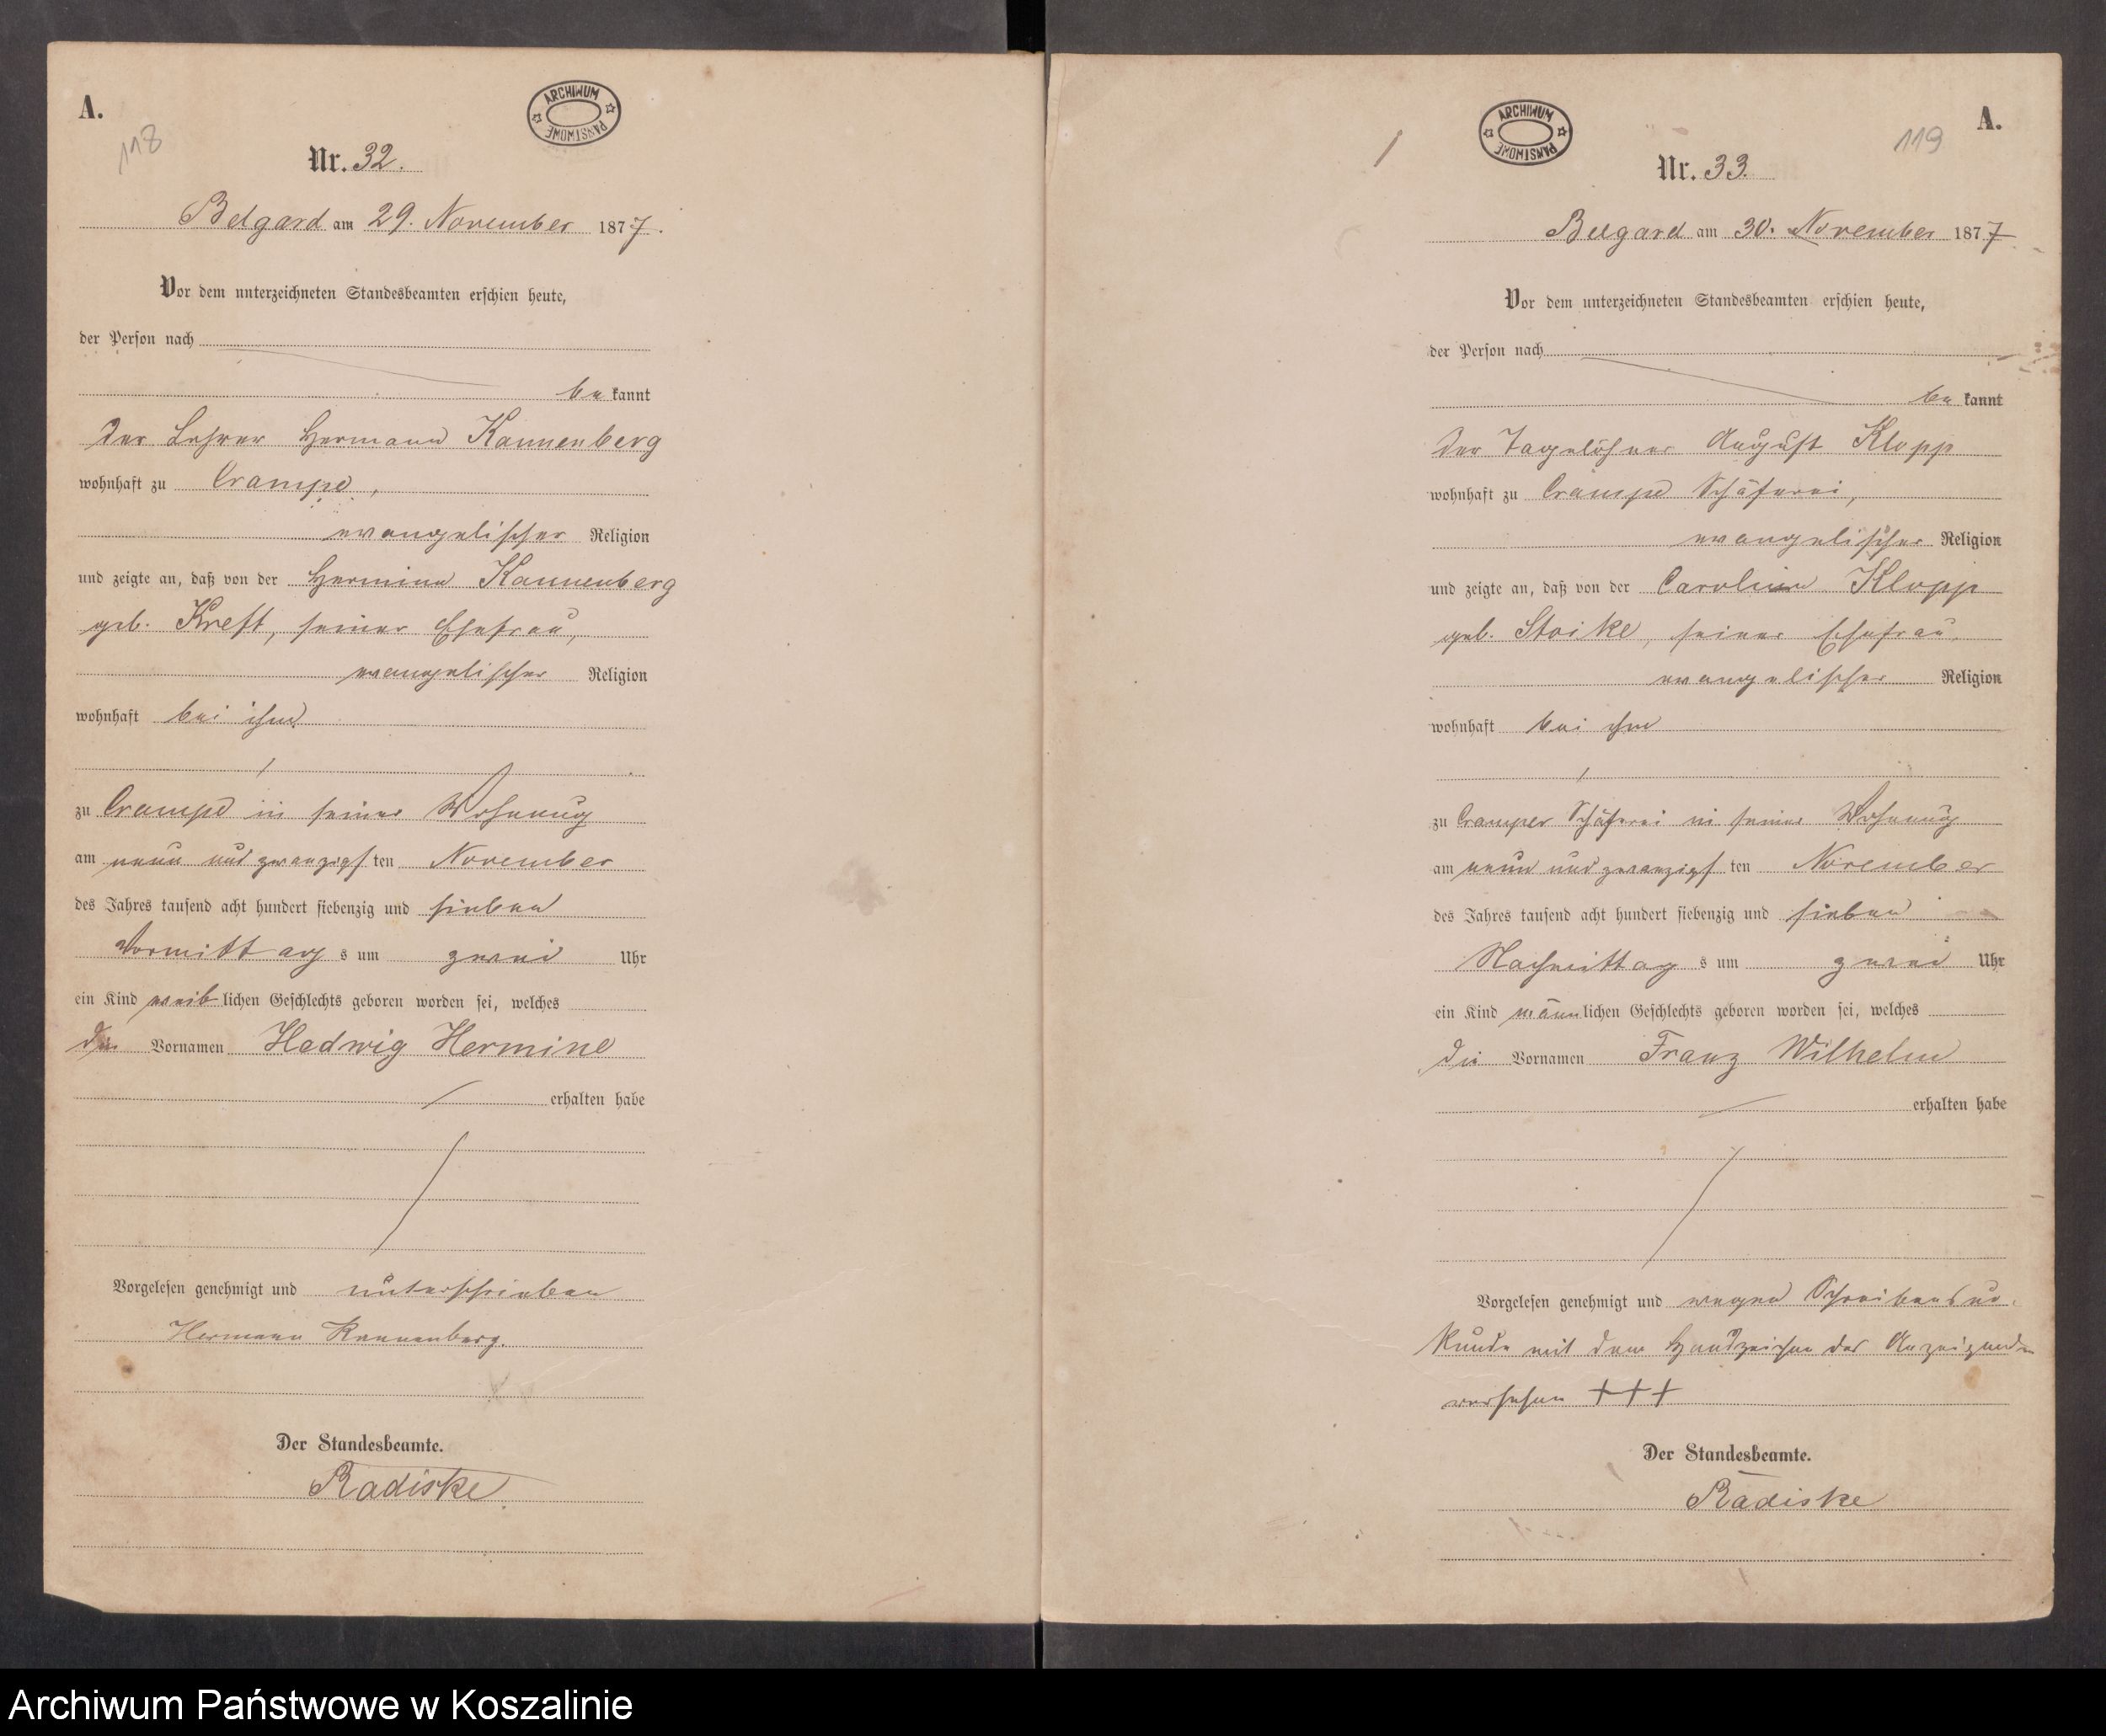 A.
118
ARCHIWUM PAŃSTWOWE
Nr. 32.
Belgard am 29. November 1877.
Vor dem unterzeichneten Standesbeamten erschien heute,
der Person nach
be kannt
Der Lehrer Hermann Kannenberg
wohnhaft zu Crampe,
evangelischer Religion
und zeigte an, daß von der Hermine Kannenberg
geb. Kreft, seiner Ehefrau,
evangelischer Religion
wohnhaft bei ihm
zu Crampe in seiner Wohnung
am neun und zwanzigsten November
des Jahres tausend acht hundert siebenzig und sieben
Vormittags um zwei Uhr
ein Kind weiblichen Geschlechts geboren worden sei, welches
die Vornamen Hedwig Hermine
erhalten habe
Vorgelesen genehmigt und unterschrieben
Hermann Kannenberg.
Der Standesbeamte.
Radiske
A.
119
ARCHIWUM PAŃSTWOWE
Nr. 33.
Belgard am 30. November 1877
Vor dem unterzeichneten Standesbeamten erschien heute,
der Person nach
be kannt
Der Tagelöhner August Klopp
wohnhaft zu Crampe Schäferei,
evangelischer Religion
und zeigte an, daß von der Caroline Klopp
geb. Stoike, seiner Ehefrau,
evangelischer Religion
wohnhaft bei ihm
zu Cramper Schäferei in seiner Wohnung
am neun und zwanzigsten November
des Jahres tausend acht hundert siebenzig und sieben
Nachmittags um zwei Uhr
ein Kind männlichen Geschlechts geboren worden sei, welches
die Vornamen Franz Wilhelm
erhalten habe
Vorgelesen genehmigt und wegen Schreibensun-
kunde mit dem Handzeichen des Anzeigenden
versehen +++
Der Standesbeamte.
Radiske
Archiwum Państwowe w Koszalinie